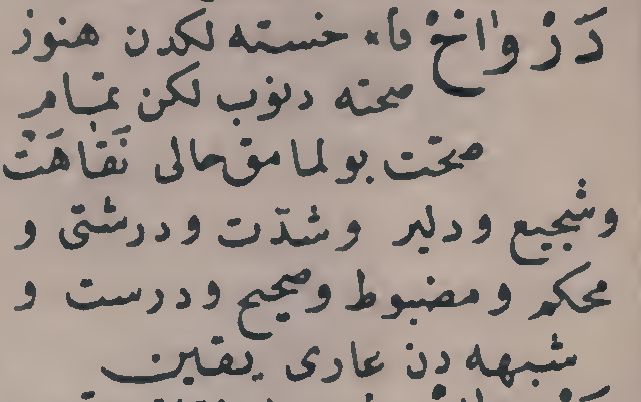 دَزْواخْ فا٠ خسته لكدن هنوز
صحته دنوب لكن تمام
صحّت بولمامق حالى نَقَاهَتْ
وشجيع ودلير وشدّت ودرشتى و
محكم ومضبوط وصحيح ودرست و
شبهه دن عارى يقين